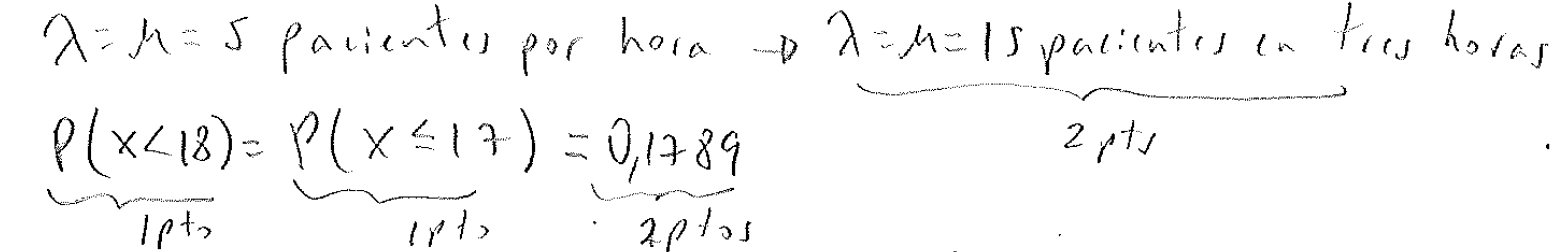 λ=μ=5 pacientes por hora → λ=μ=15 pacientes en tres horas
2 pts
P(x<18)= P(x≤17) = 0,1789
1pto 1pto 2ptos